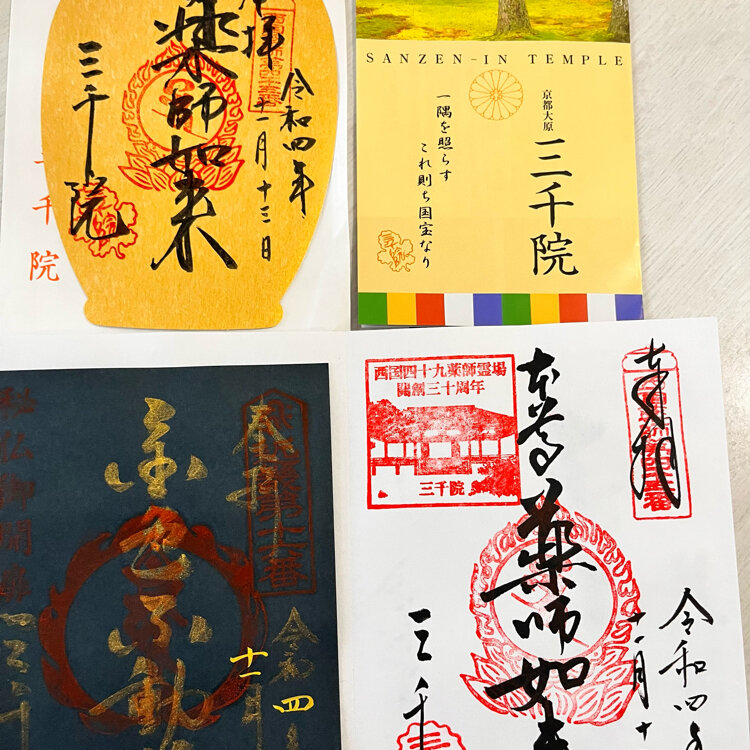 奉拝
令和四年
十一月十三日
薬師如来
三千院
三千院
SANZEN-IN TEMPLE
京都大原
三千院
一隅を照らす
これ則ち国宝なり
奉拝
金色不動
秘仏御開扉
令和四
十一月
三千
西国四十九薬師霊場
開創三十周年
三千院
奉拝
本尊
薬師如来
令和四年
十一月十
三千